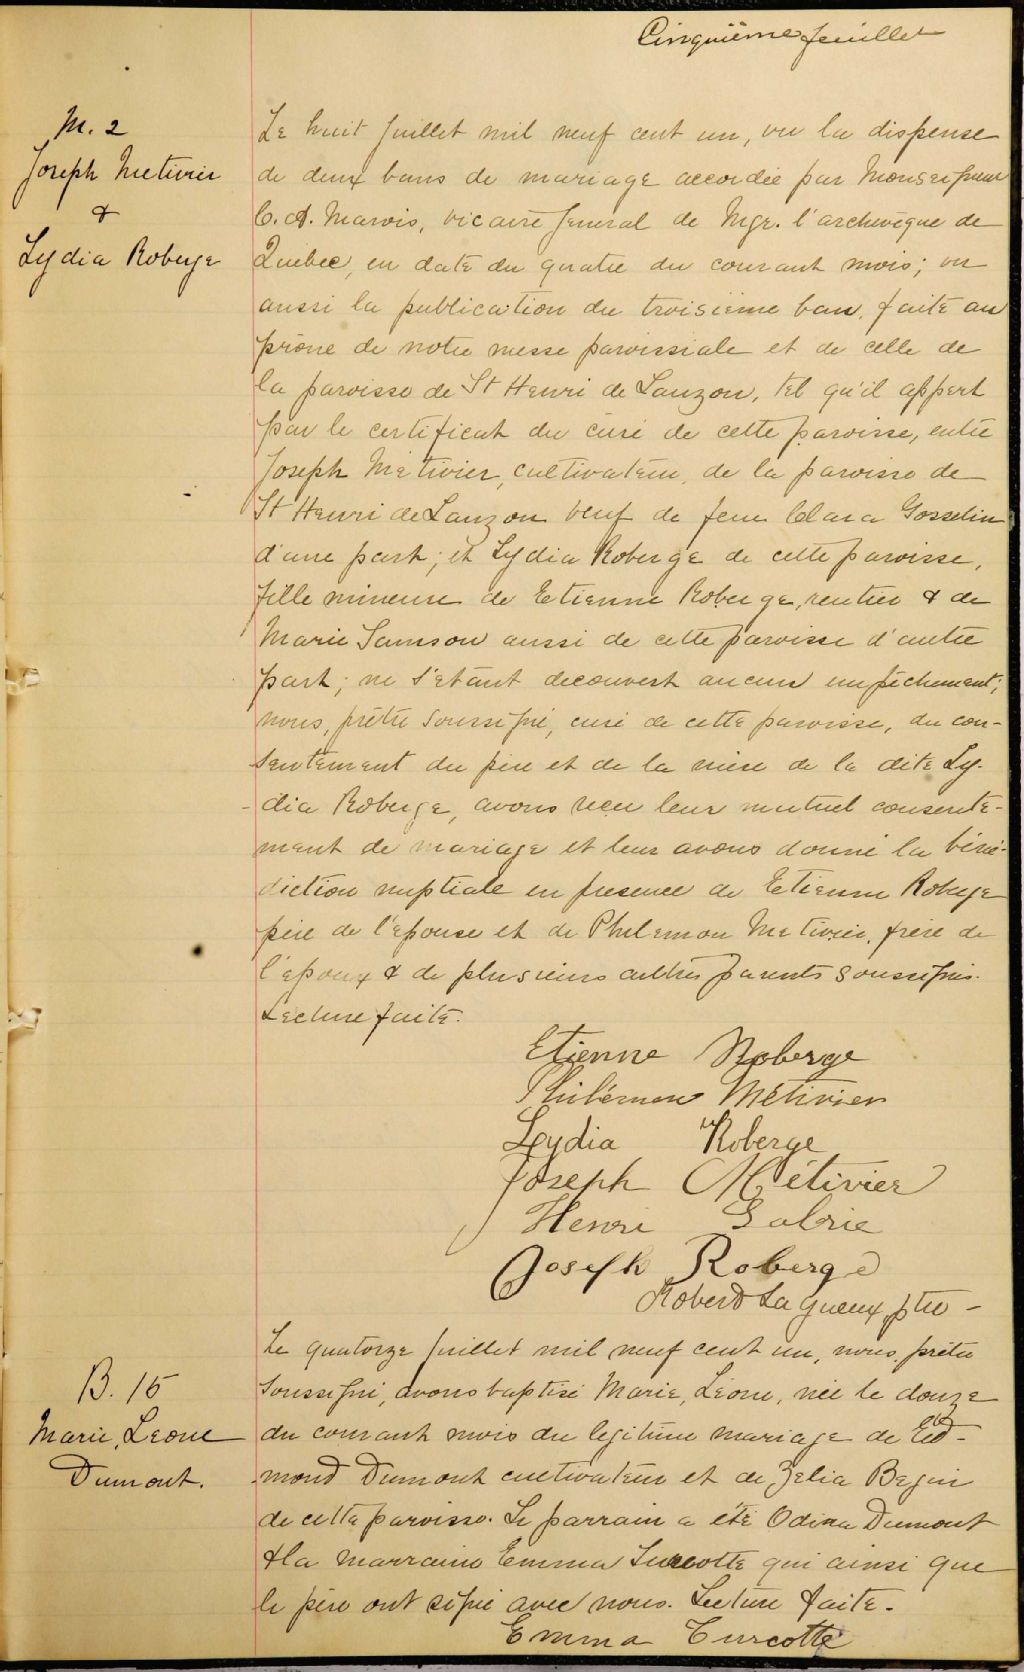 Cinquième feuillet
M. 2
Joseph Metivier
&
Lydia Roberge
Le huit Juillet mil neuf cent un, vu la dispense
de deux bans de mariage accordée par Monseigneur
C. A. Marois, vicaire général de Mgr. l'archevêque de
Québec, en date du quatre du courant mois; vu
aussi la publication du troisième ban, faite au
prône de notre messe paroissiale et de celle de
la paroisse de St Henri de Lauzon, tel qu'il appert
par le certificat du curé de cette paroisse, entre
Joseph Métivier, cultivateur, de la paroisse de
St Henri de Lauzon veuf de feue Clara Gosselin
d'une part; et Lydia Roberge de cette paroisse,
fille mineure de Etienne Roberge, rentier & de
Marie Samson aussi de cette paroisse d'autre
part; ne s'étant découvert aucun empêchement;
nous, prêtre soussigné, curé de cette paroisse, du con-
sentement du père et de la mère de la dite Ly-
dia Roberge, avons reçu leur mutuel consente-
ment de mariage et leur avons donné la béné-
diction nuptiale en présence de Etienne Roberge
père de l'épouse et de Philemon Metivier, frère de
l'époux & de plusieurs autres parents soussignés.
Lecture faite.
Etienne Roberge
Philémon Métivier
Lydia Roberge
Joseph Métivier
Henri
Joseph Roberge
Robert Lagueux, ptre -
Le quatorze juillet mil neuf cent un, nous, prêtre
soussigné, avons baptisé Marie, Léone, née le douze
du courant mois du légitime mariage de Ed-
mond Dumont cultivateur et de Zélia Begin
de cette paroisse. Le parrain a été Odina Dumont
& la marraine Emma Turcotte qui ainsi que
le père ont signé avec nous. Lecture faite.
B. 15
Marie, Leone
Dumont.
Emma Turcotte